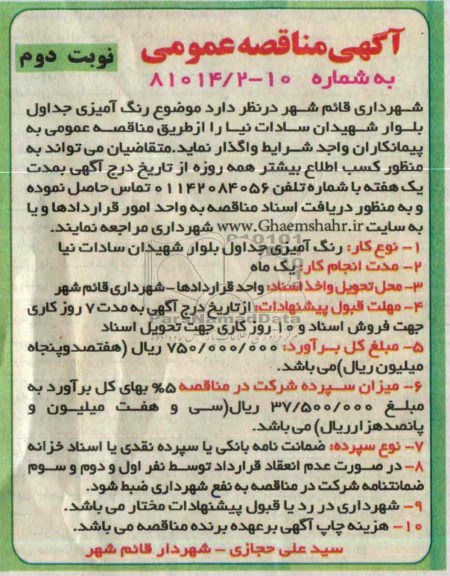 آگهی مناقصه عمومی
نوبت دوم
به شماره ۱۰-۸۱۰۱۴/۲
شهرداری قائم شهر درنظر دارد موضوع رنگ آمیزی جداول
بلوار شهیدان سادات نیا را ازطریق مناقصه عمومی به
پیمانکاران واجد شرایط واگذار نماید.متقاضیان می تواند به
منظور کسب اطلاع بیشتر همه روزه از تاریخ درج آگهی بمدت
یک هفته با شماره تلفن ۰۱۱۴۲۰۸۴۰۵۶ تماس حاصل نموده
و به منظور دریافت اسناد مناقصه به واحد امور قراردادها و یا
به سایت www.Ghaemshahr.ir شهرداری مراجعه نمایند.
۱- نوع کار: رنگ آمیزی جداول بلوار شهیدان سادات نیا
۲- مدت انجام کار: یک ماه
۳- محل تحویل واخذ اسناد: واحد قراردادها-شهرداری قائم شهر
۴- مهلت قبول پیشنهادات: ازتاریخ درج آگهی به مدت ۷ روز کاری
جهت فروش اسناد و ۱۰ روز کاری جهت تحویل اسناد
۵- مبلغ کل برآورد: ۷۵۰/۰۰۰/۰۰۰ ریال (هفتصدوپنجاه
میلیون ریال)می باشد.
۶- میزان سپرده شرکت در مناقصه ۵% بهای کل برآورد به
مبلغ ۳۷/۵۰۰/۰۰۰ ریال(سی و هفت میلیون و
پانصدهزارریال) می باشد.
۷- نوع سپرده: ضمانت نامه بانکی یا سپرده نقدی یا اسناد خزانه
۸- در صورت عدم انعقاد قرارداد توسط نفر اول و دوم و سوم
ضمانتنامه شرکت در مناقصه به نفع شهرداری ضبط شود.
۹- شهرداری در رد یا قبول پیشنهادات مختار می باشد.
۱۰- هزینه چاپ آگهی برعهده برنده مناقصه می باشد.
سید علی حجازی - شهردار قائم شهر